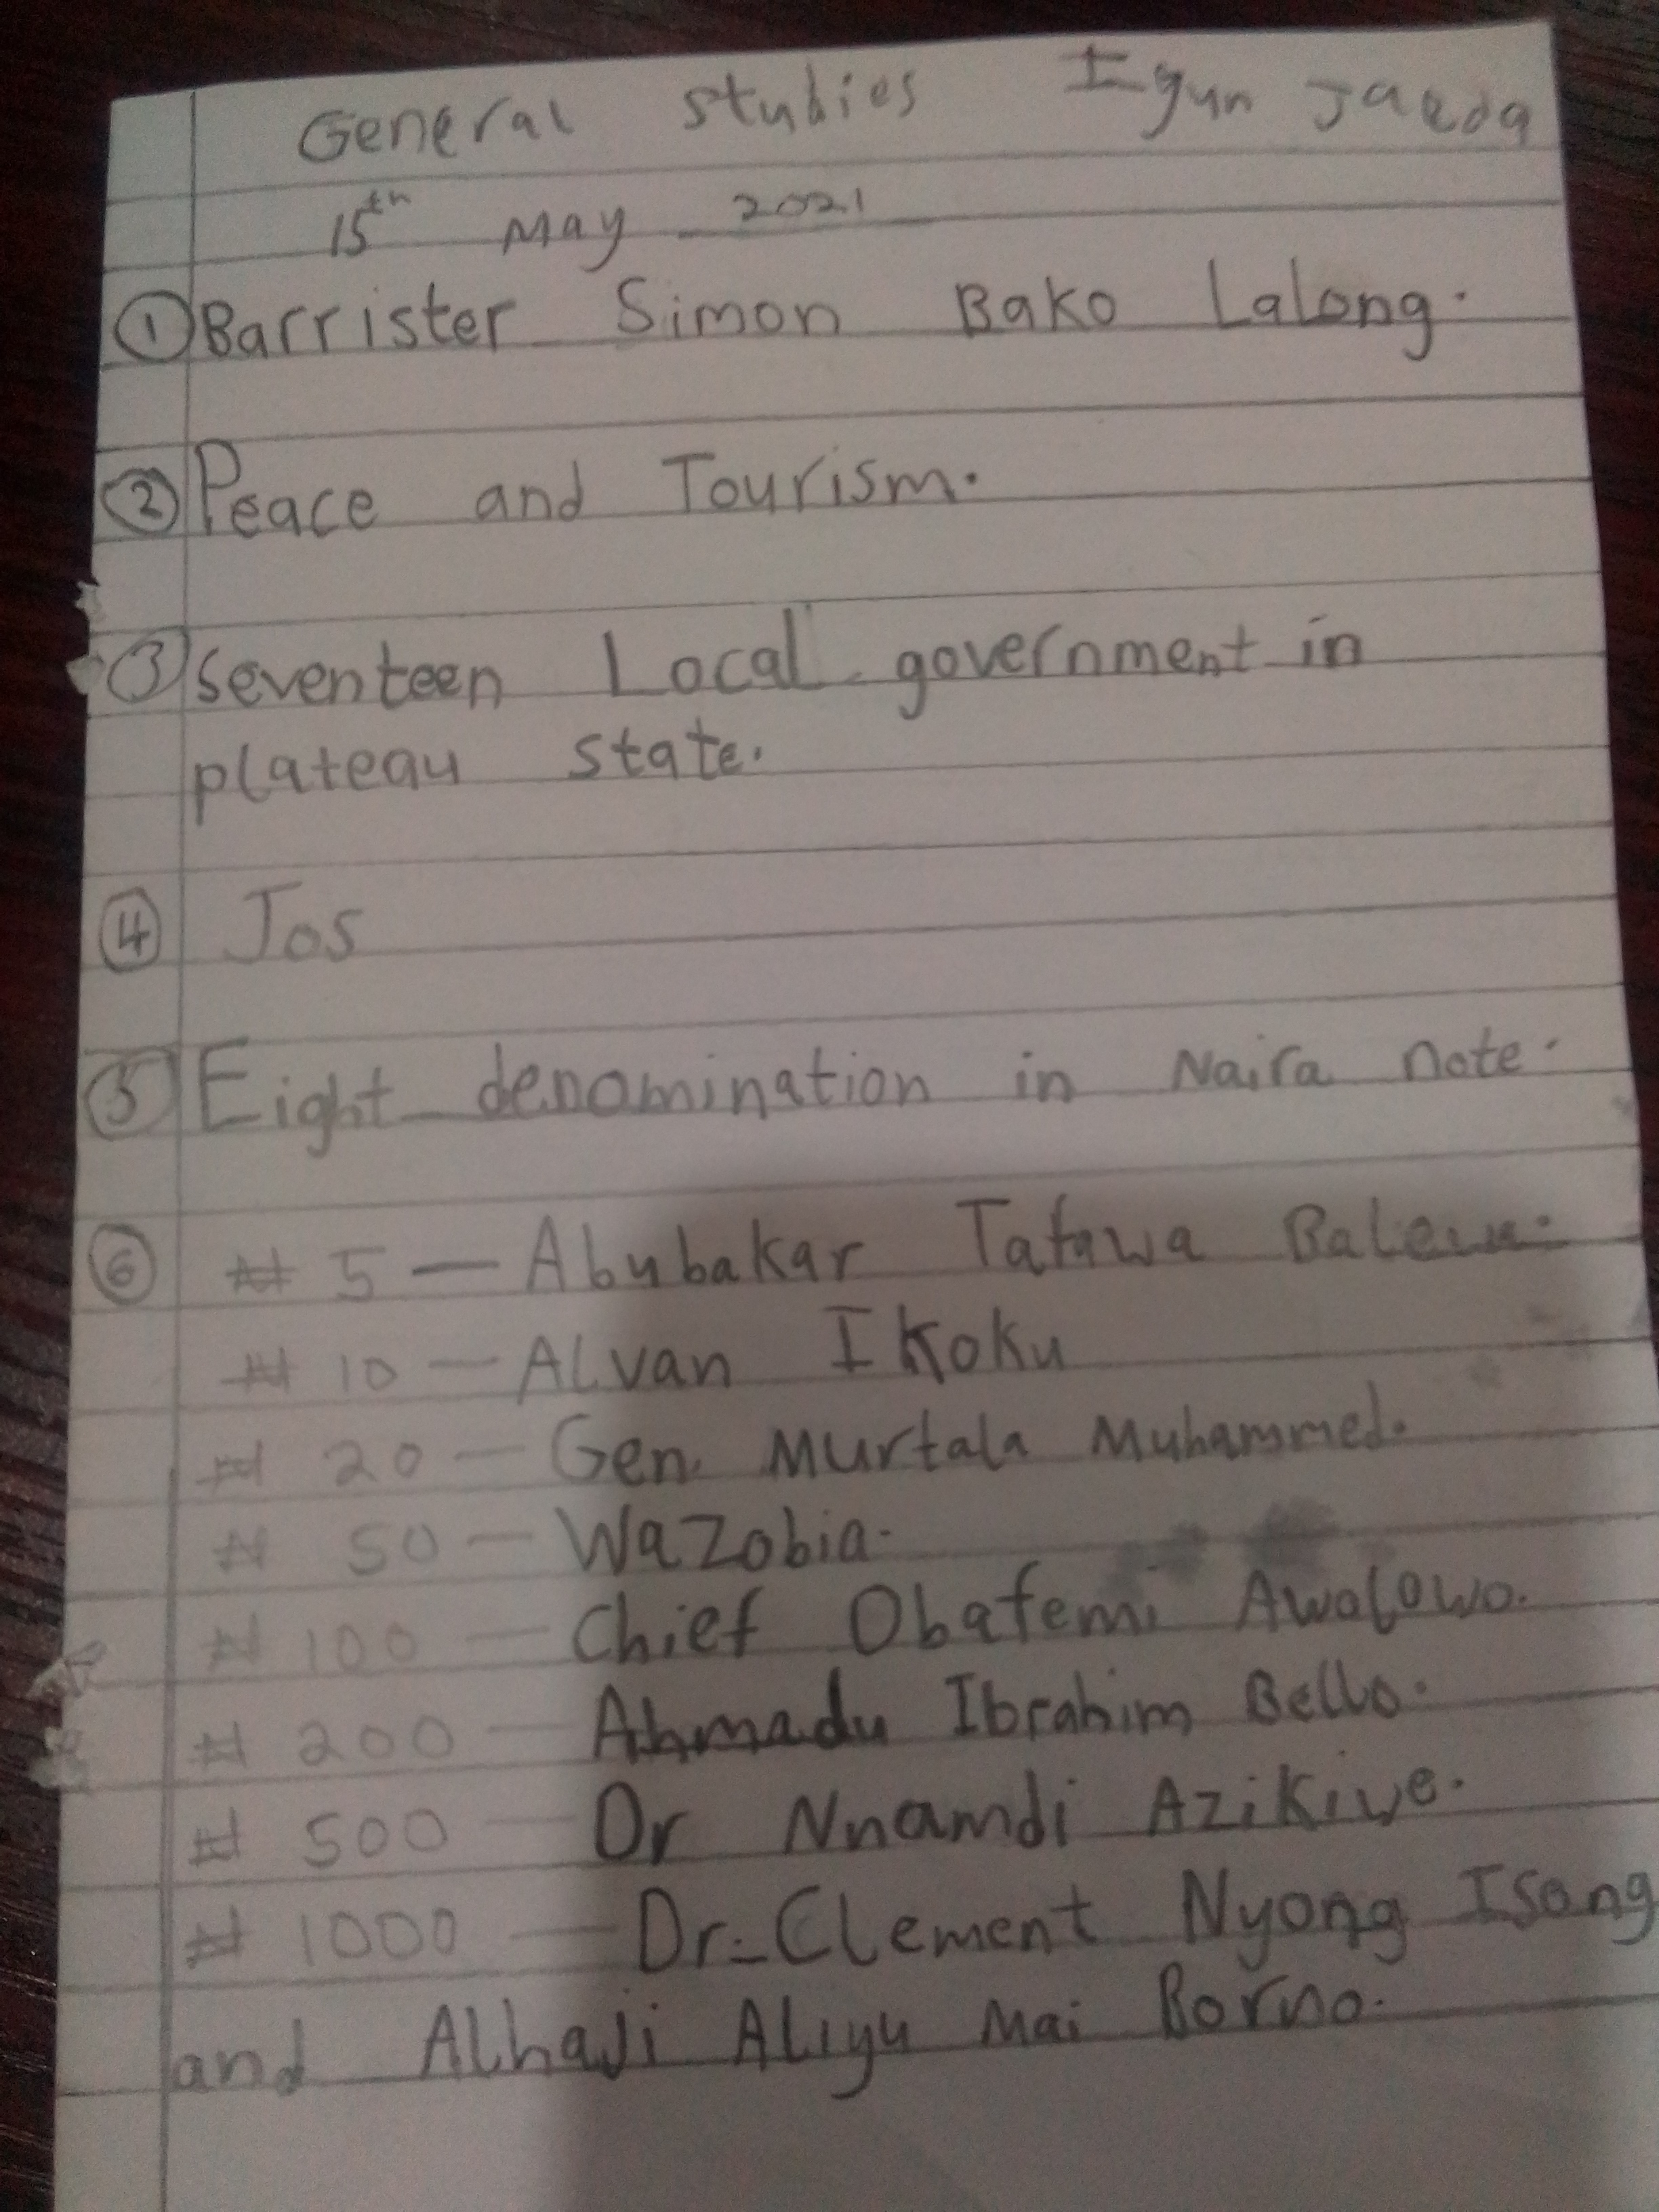 General studies Igyun Jaeda
15th May 2021
① Barrister Simon Bako Lalong.
② Peace and Tourism.
③ Seventeen Local government in
plateau state.
④ Jos
⑤ Eight denomination in Naira note.
⑥ # 5 — Abubakar Tafawa Balewa.
# 10 — ALvan Ikoku
# 20 — Gen. Murtala Muhammed.
# 50 — WaZobia.
# 100 — Chief Obafemi Awolowo.
# 200 — Ahmadu Ibrahim Bello.
# 500 — Dr Nnamdi Azikiwe.
# 1000 — Dr. Clement Nyong Isong
and Alhaji Aliyu Mai Borno.